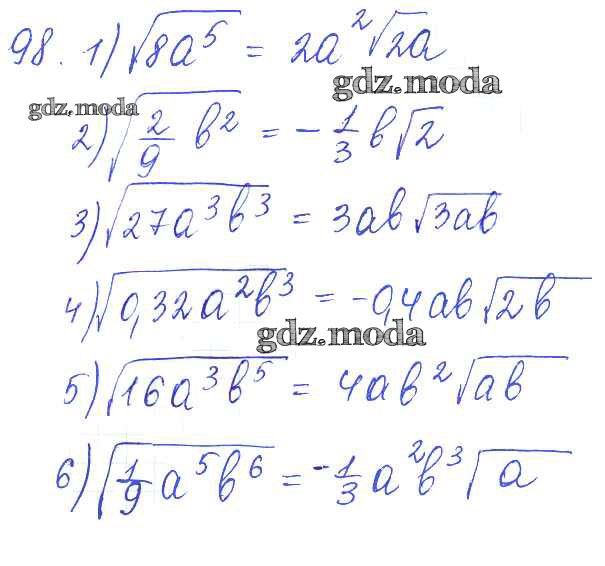 98. 1) √8a⁵ = 2a²√2a
gdz.moda
gdz.moda
2) √2/9 b² = -1/3 b√2
3) √27a³b³ = 3ab√3ab
4) √0,32a²b³ = -0,4ab√2b
gdz.moda
5) √16a³b⁵ = 4ab²√ab
6) √1/9 a⁵b⁶ = -1/3 a²b³√a